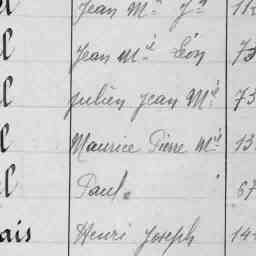 Jean M.ie J.n
l Jean M.ié Léon 73
l Julien Jean M.ié 73
l Maurice Pierre M.ié 13
l Paul. 67
ais Henri Joseph 144